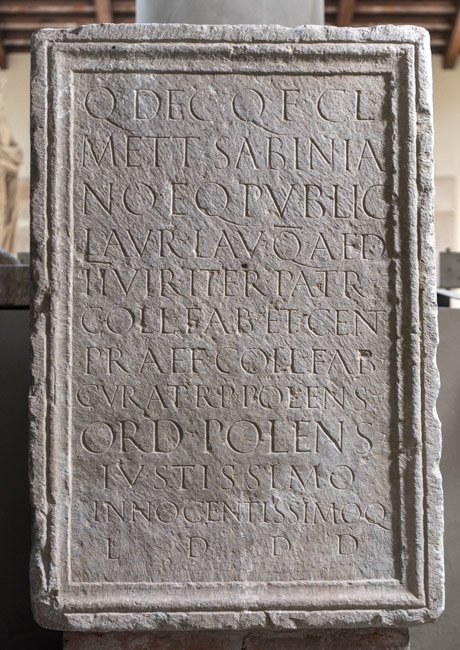 Q DEC·Q F·CL
METT·SABINIA
NO EQ PVBLIC
LAVR·LAV Q AED
IIVIR ITER PATR
COLL·FAB·ET·CENT
PRAEF COLL FAB
CVRAT R P POLENS
ORD·POLENS
IVSTISSIMO
INNOCENTISSIMOQ
L D D D